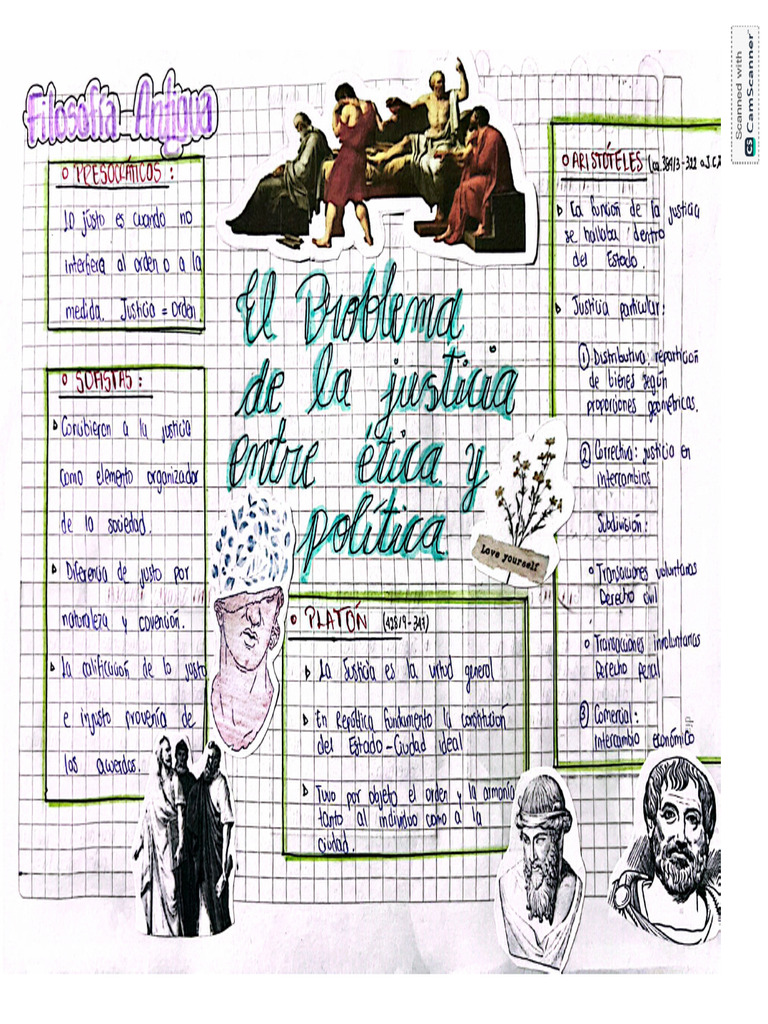 Filosofía Antigua
° PRESOCRÁTICOS:
Lo justo es cuando no
interfiera al orden o a la
medida. Justicia = orden.
° SOFISTAS:
Concibieron a la justicia
como elemento organizador
de la sociedad.
Diferencia de justo por
naturaleza y covención.
La calificación de lo justo
e injusto provenía de
los acuerdos.
El Problema
de la justicia
entre ética y
política
Love yourself
° PLATÓN (428/9-347)
La Justicia es la virtud general
En República fundamento la constitución
del Estado-Ciudad ideal
Tuvo por objeto el orden y la armonía
tanto al individuo como a la
ciudad.
° ARISTÓTELES (ca. 384/3-322 a.J.C.)
La función de la justicia
se hallaba dentro
del Estado.
Justicia particular:
① Distributiva: repartición
de bienes según
proporciones geométricas.
② Correctiva: justicia en
intercambios
Subdivisión:
° Transacciones voluntarias
Derecho civil
° Transacciones involuntarias
Derecho Penal
③ Comercial:
intercambio económico
Scanned with
CS CamScanner